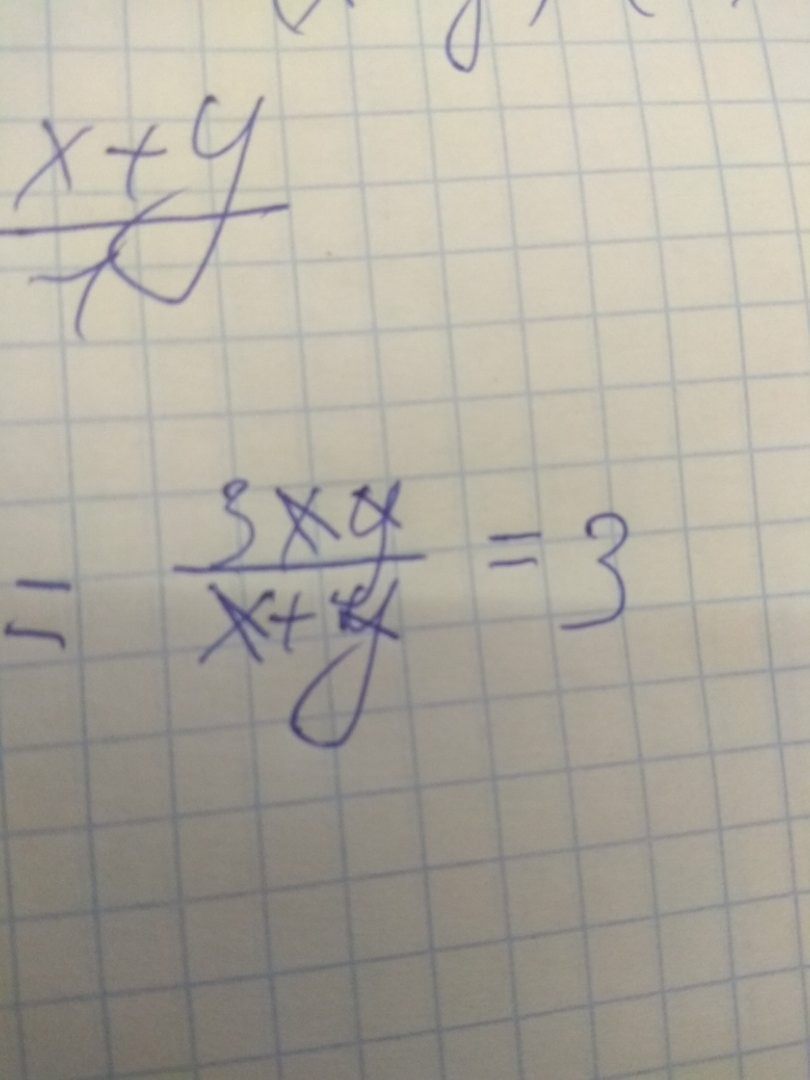 x+y
= 3xy / x+y = 3